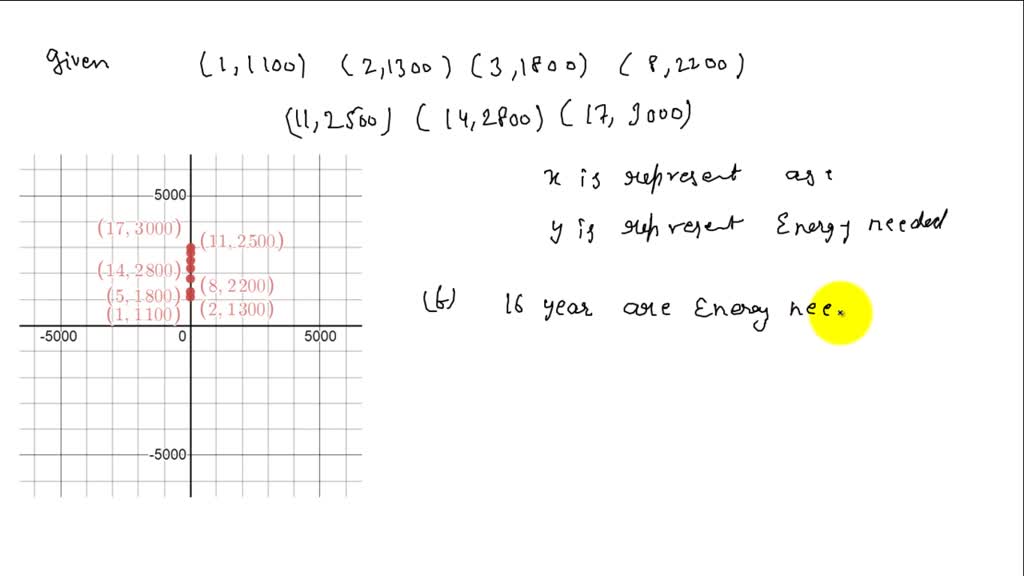 given (1,1100) (2,1300) (3,1800) (8,2200)
(11,2500) (14,2800) (17, 3000)
x is represent age
y is represent Energy needed
(b) 16 year are Energy nee
5000
(17, 3000)
(11, 2500)
(14, 2800)
(8, 2200)
(5, 1800)
(2, 1300)
(1, 1100)
-5000 0 5000
-5000